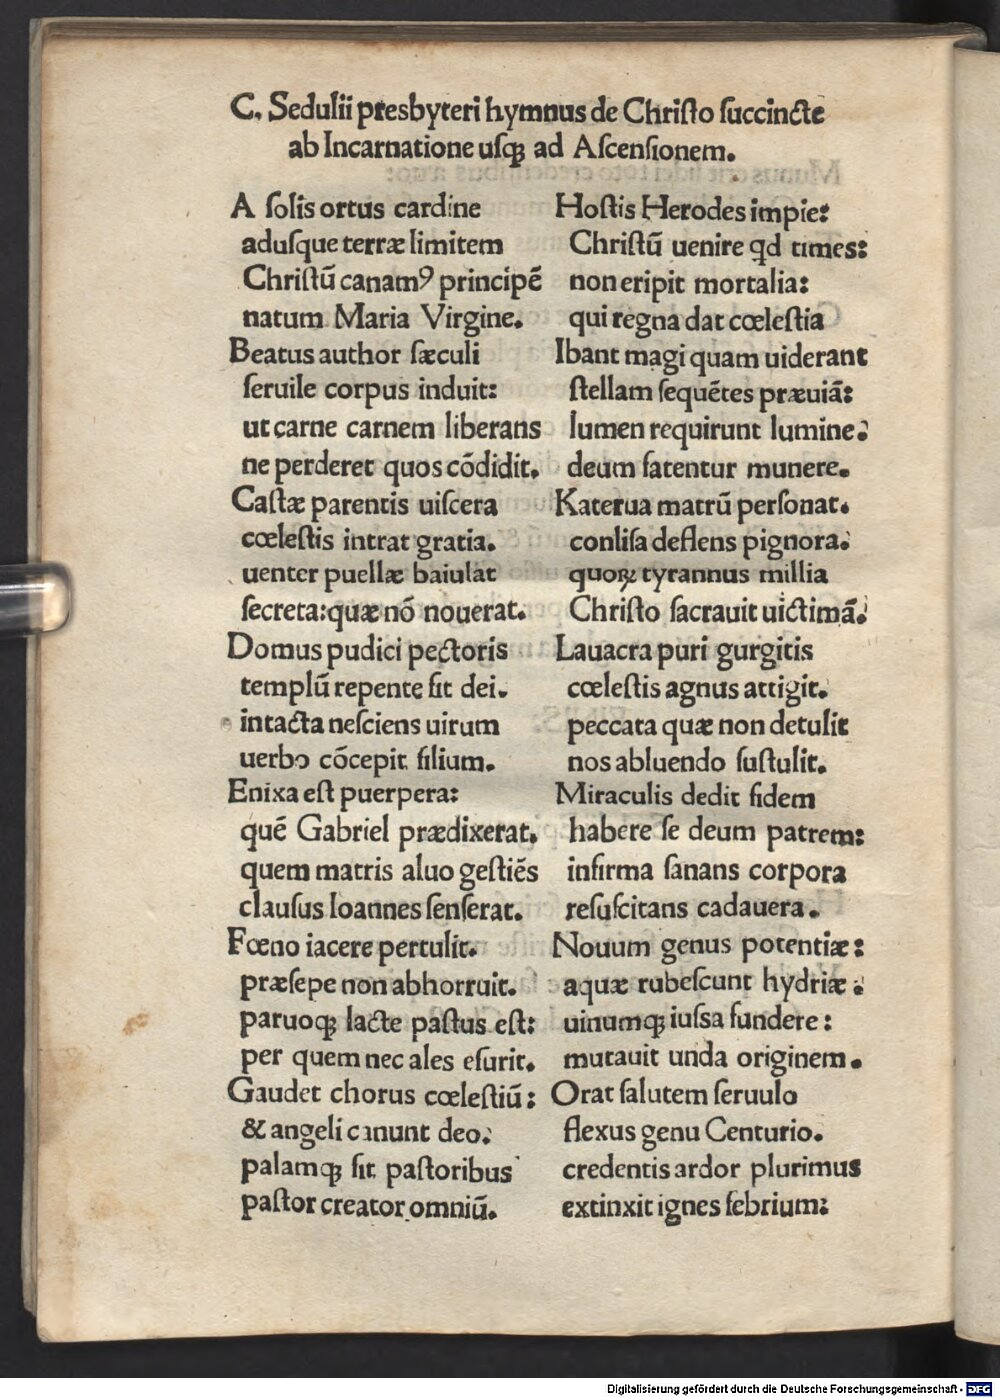 C. Sedulii presbyteri hymnus de Chriſto ſuccincte
ab Incarnatione uſqꝫ ad Aſcenſionem.
A ſolis ortus cardine
aduſque terræ limitem
Chriſtū canamꝰ principē
natum Maria Virgine.
Beatus author ſæculi
ſeruile corpus induit:
ut carne carnem liberans
ne perderet quos cōdidit.
Caſtæ parentis uiſcera
cœleſtis intrat gratia.
uenter puellæ baiulat
ſecreta: quæ nō nouerat.
Domus pudici pectoris
templū repente fit dei.
intacta neſciens uirum
uerbo cōcepit filium.
Enixa eſt puerpera:
quē Gabriel prædixerat.
quem matris aluo geſtiēs
clauſus Ioannes ſenſerat.
Fœno iacere pertulit.
præſepe non abhorruit.
paruoqꝫ lacte paſtus eſt:
per quem nec ales eſurit.
Gaudet chorus cœleſtiū:
& angeli canunt deo.
palamqꝫ fit paſtoribus
paſtor creator omniū.
Hoſtis Herodes impie:
Chriſtū uenire qd times:
non eripit mortalia:
qui regna dat cœleſtia
Ibant magi quam uiderant
ſtellam ſequētes præuiā:
lumen requirunt lumine:
deum fatentur munere.
Katerua matrū perſonat.
conliſa deflens pignora.
quoꝝ tyrannus millia
Chriſto ſacrauit uictimā.
Lauacra puri gurgitis
cœleſtis agnus attigit.
peccata quæ non detulit
nos abluendo ſuſtulit.
Miraculis dedit fidem
habere ſe deum patrem:
infirma ſanans corpora
reſuſcitans cadauera.
Nouum genus potentiæ:
aquæ rubeſcunt hydriæ:
uinumqꝫ iuſſa fundere:
mutauit unda originem.
Orat ſalutem ſeruulo
flexus genu Centurio.
credentis ardor plurimus
extinxit ignes febrium:
Digitalisierung gefördert durch die Deutsche Forschungsgemeinschaft - DFG